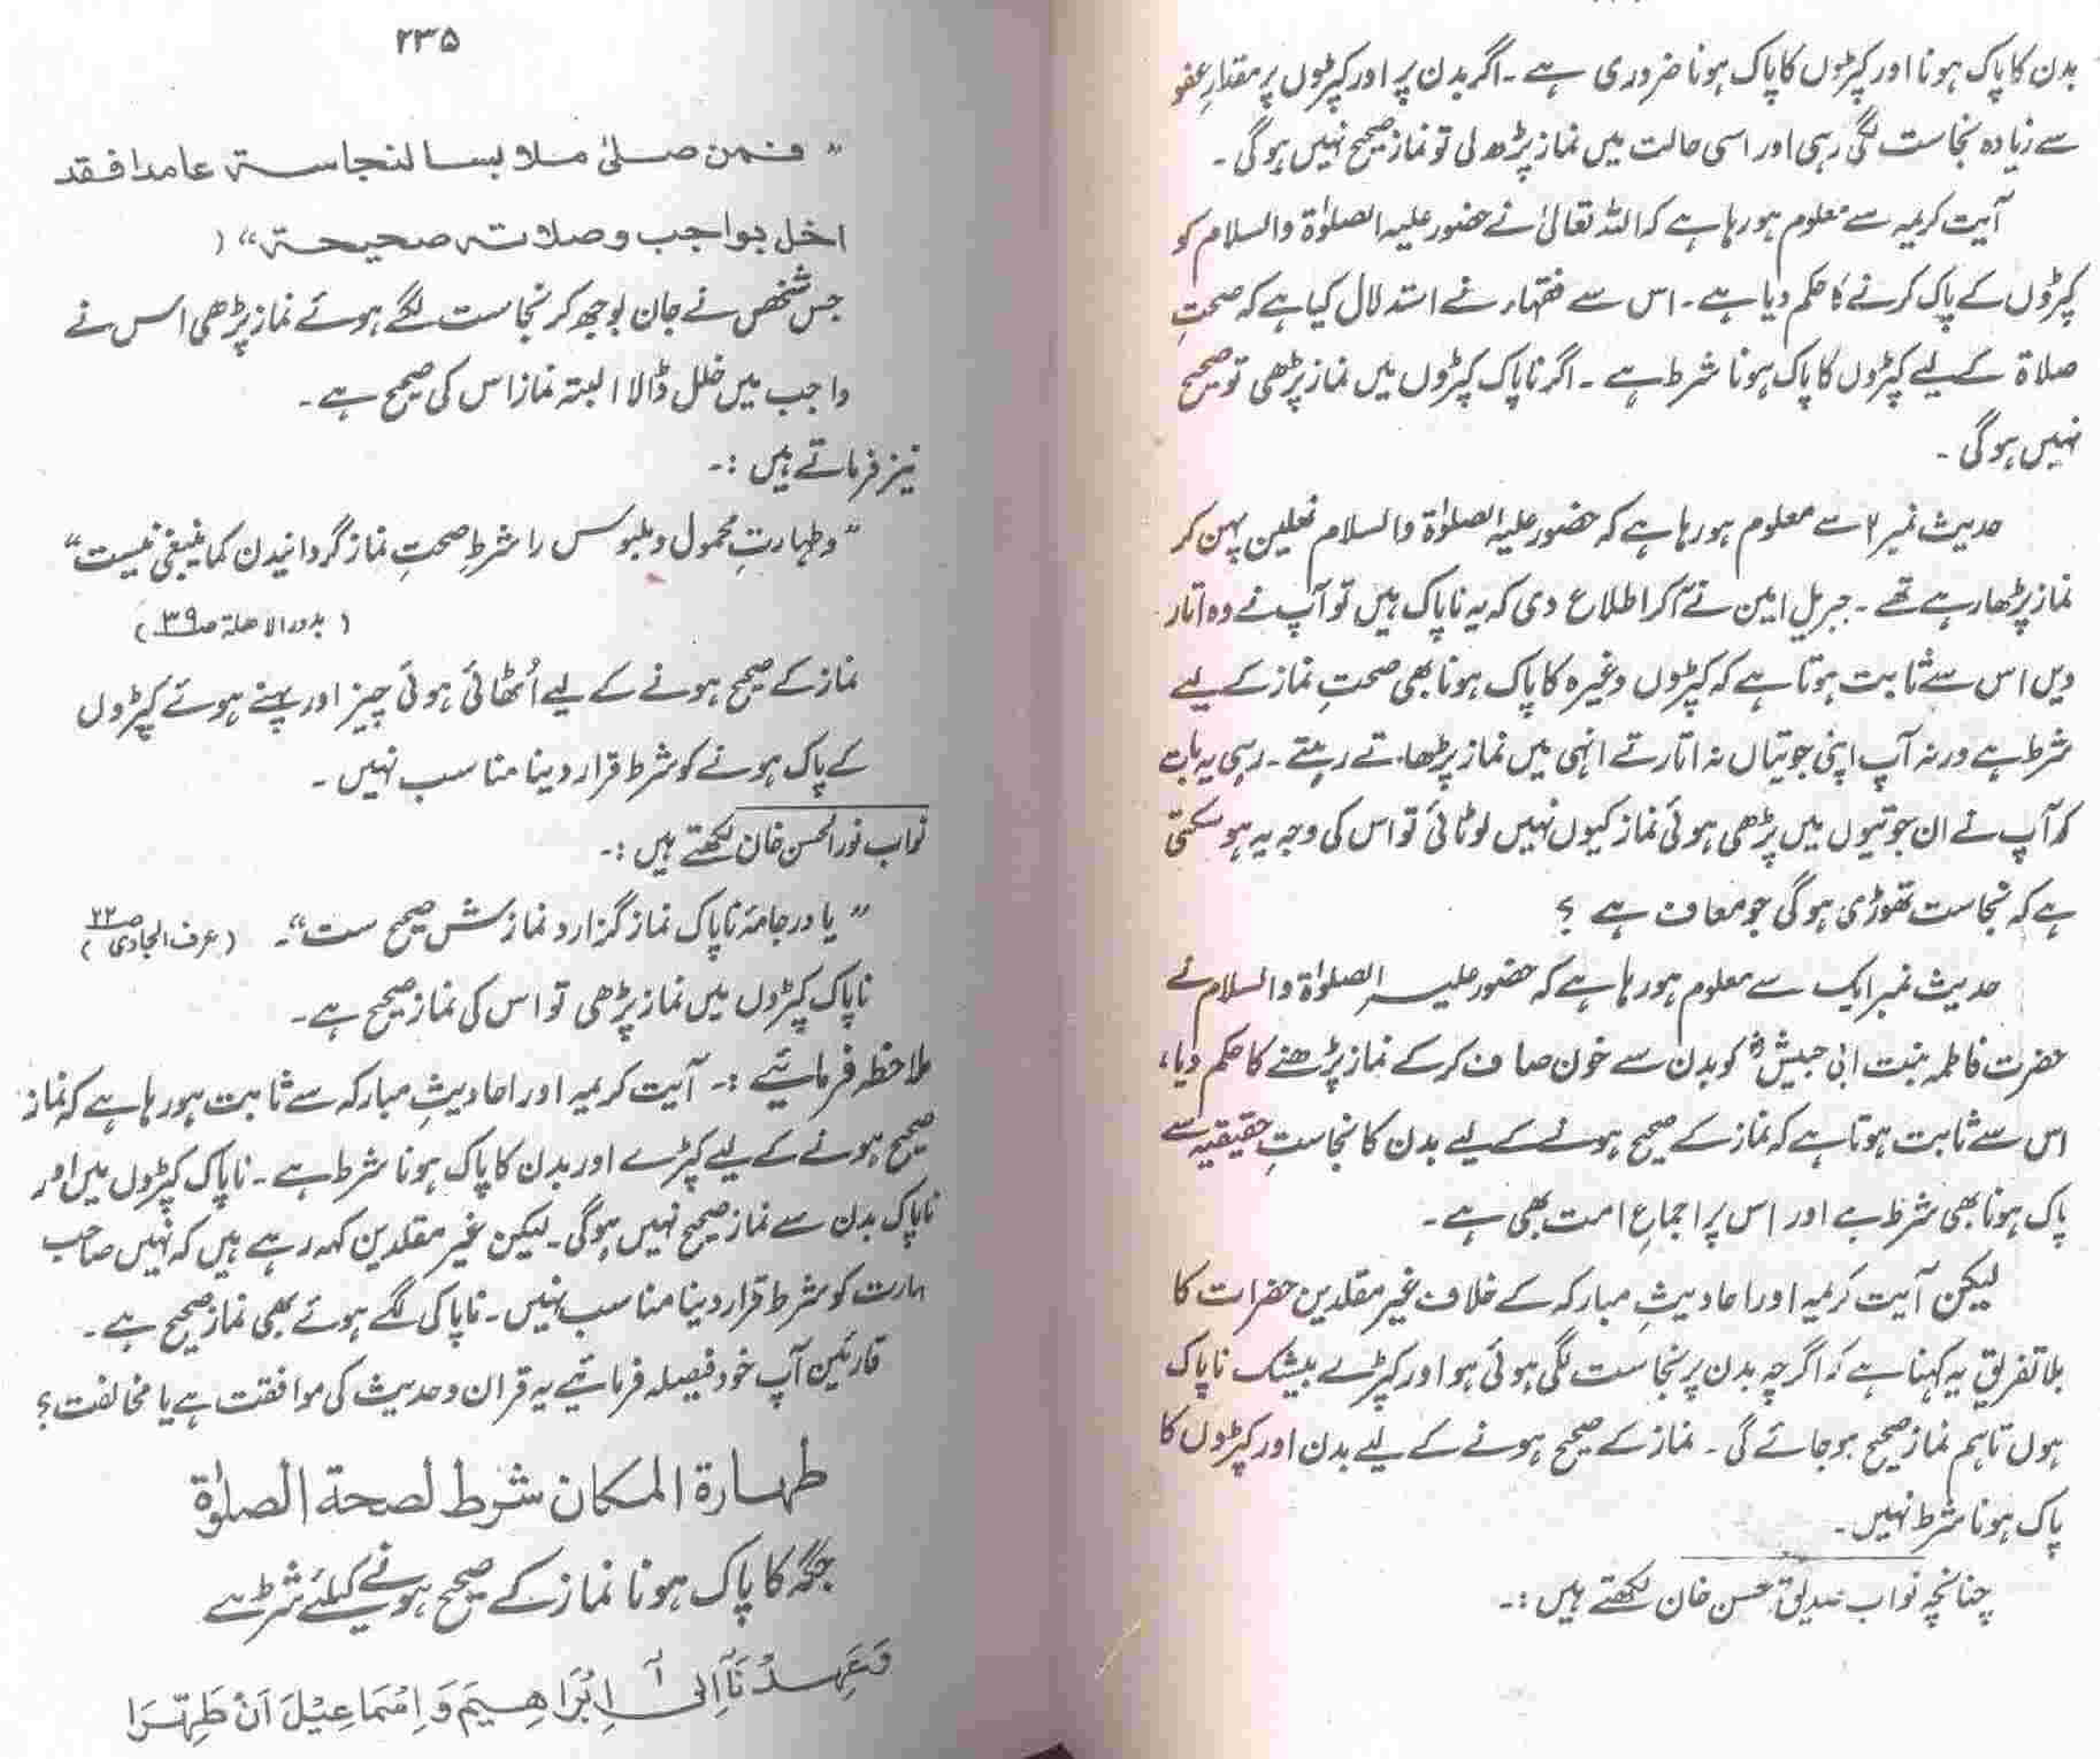 بدن کا پاک ہونا اور کپڑوں کا پاک ہونا ضروری ہے ۔ اگر بدن پر اور کپڑوں پر مقدارِ عفو
سے زیادہ نجاست لگی رہی اور اسی حالت میں نماز پڑھ لی تو نماز صحیح نہیں ہوگی ۔
آیت کریمہ سے معلوم ہو رہا ہے کہ اللہ تعالیٰ نے حضور علیہ الصلوٰۃ والسلام کو
کپڑوں کے پاک کرنے کا حکم دیا ہے ۔ اس سے فقہاء نے استدلال کیا ہے کہ صحتِ
صلاۃ کے لیے کپڑوں کا پاک ہونا شرط ہے ۔ اگر ناپاک کپڑوں میں نماز پڑھی تو صحیح
نہیں ہوگی ۔
حدیث نمبر ۲ سے معلوم ہو رہا ہے کہ حضور علیہ الصلوٰۃ والسلام نعلین پہن کر
نماز پڑھا رہے تھے ۔ جبریل امین نے آکر اطلاع دی کہ یہ ناپاک ہیں تو آپ نے وہ اتار
دیں اس سے ثابت ہوتا ہے کہ کپڑوں وغیرہ کا پاک ہونا بھی صحتِ نماز کے لیے
شرط ہے ورنہ آپ اپنی جوتیاں نہ اتارتے انہی میں نماز پڑھاتے رہتے ۔ رہی یہ بات
کہ آپ نے ان جوتیوں میں پڑھی ہوئی نماز کیوں نہیں لوٹائی تو اس کی وجہ یہ ہو سکتی
ہے کہ نجاست تھوڑی ہوگی جو معاف ہے ؟
حدیث نمبر ایک سے معلوم ہو رہا ہے کہ حضور علیہ الصلوٰۃ والسلام نے
حضرت فاطمہ بنت ابی حبیشؓ کو بدن سے خون صاف کر کے نماز پڑھنے کا حکم دیا،
اس سے ثابت ہوتا ہے کہ نماز کے صحیح ہونے کے لیے بدن کا نجاستِ حقیقیہ سے
پاک ہونا بھی شرط ہے اور اس پر اجماعِ امت بھی ہے ۔
لیکن آیت کریمہ اور احادیثِ مبارکہ کے خلاف غیر مقلدین حضرات کا
بلا تفریق یہ کہنا ہے کہ اگرچہ بدن پر نجاست لگی ہوئی ہو اور کپڑے بیشک ناپاک
ہوں تاہم نماز صحیح ہو جائے گی ۔ نماز کے صحیح ہونے کے لیے بدن اور کپڑوں کا
پاک ہونا شرط نہیں ۔
چنانچہ نواب صدیق حسن خان لکھتے ہیں :۔
۲۳۵
” فمن صلیٰ ملابسا لنجاسۃ عامدا فقد
اخل بواجب وصلاتہ صحیحۃ“ (
جس شخص نے جان بوجھ کر نجاست لگے ہوئے نماز پڑھی اس نے
واجب میں خلل ڈالا البتہ نماز اس کی صحیح ہے ۔
نیز فرماتے ہیں :۔
”وطہارتِ محمول و ملبوس را شرطِ صحتِ نماز گردانیدن کما ینبغی نیست“
( بدور الاھلۃ صـ۳۹ )
نماز کے صحیح ہونے کے لیے اُٹھائی ہوئی چیز اور پہنے ہوئے کپڑوں
کے پاک ہونے کو شرط قرار دینا مناسب نہیں ۔
نواب نور الحسن خان لکھتے ہیں :۔
” یا در جامۂ ناپاک نماز گزارد نمازش صحیح ست“۔ ( عرف الجادی صـ۲۲ )
ناپاک کپڑوں میں نماز پڑھی تو اس کی نماز صحیح ہے ۔
ملاحظہ فرمائیے :۔ آیت کریمہ اور احادیثِ مبارکہ سے ثابت ہو رہا ہے کہ نماز
صحیح ہونے کے لیے کپڑے اور بدن کا پاک ہونا شرط ہے ۔ ناپاک کپڑوں میں اور
ناپاک بدن سے نماز صحیح نہیں ہوگی ۔ لیکن غیر مقلدین کہہ رہے ہیں کہ نہیں صاحب
ہارت کو شرط قرار دینا مناسب نہیں ۔ ناپاکی لگے ہوئے بھی نماز صحیح ہے ۔
قارئین آپ خود فیصلہ فرمائیے یہ قرآن و حدیث کی موافقت ہے یا مخالفت ؟
طہارۃ المکان شرط لصحۃ الصلوٰۃ
جگہ کا پاک ہونا نماز کے صحیح ہونے کیلئے شرط ہے
وَعَہِدْنَآ اِلیٰٓ اِبْرَاھِیمَ وَ اِسْمَاعِیْلَ اَنْ طَہِّرَا